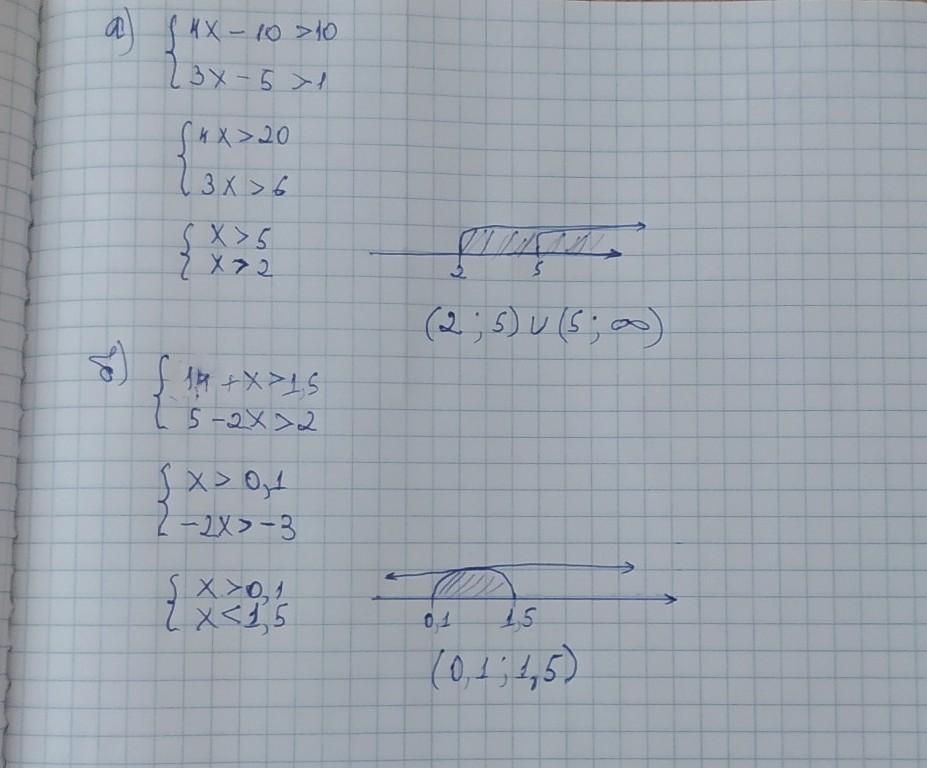 а) { 4x - 10 > 10
{ 3x - 5 > 1
{ 4x > 20
{ 3x > 6
{ x > 5
{ x > 2
2 5
(2 ; 5) ∪ (5 ; ∞)
б) { 1,4 + x > 1,5
{ 5 - 2x > 2
{ x > 0,1
{ -2x > -3
{ x > 0,1
{ x < 1,5
0,1 1,5
(0,1 ; 1,5)